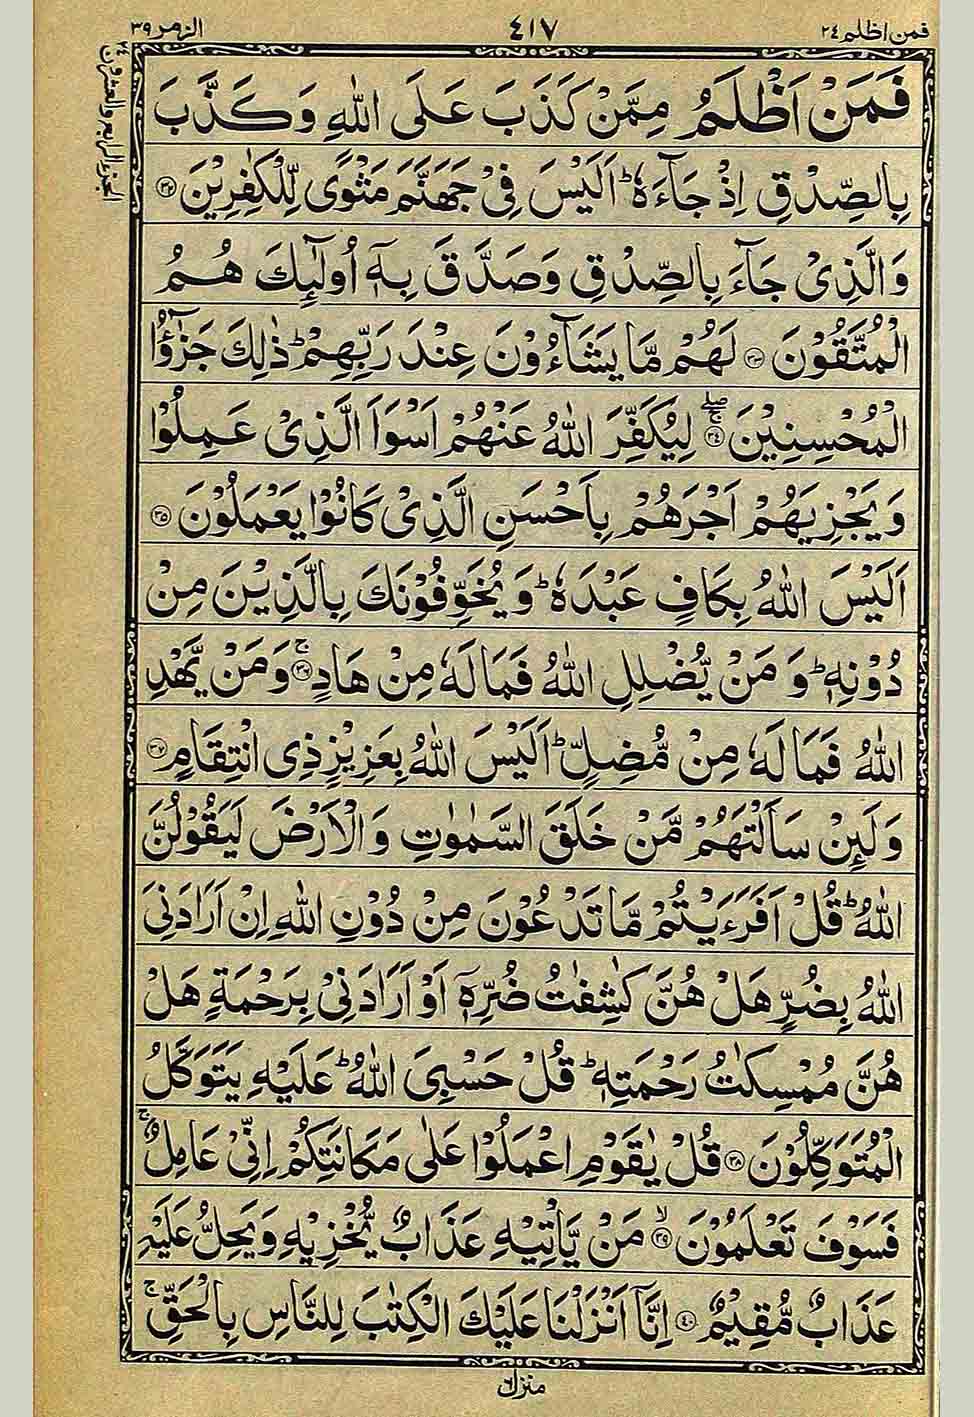 فمن اظلم ٢٤
٤١٧
الزمر ٣٩
الجزء الرابع والعشرون ٢٤
فَمَنْ اَظْلَمُ مِمَّنْ كَذَبَ عَلَى اللّٰهِ وَكَذَّبَ
بِالصِّدْقِ اِذْ جَآءَهٗ ؕ اَلَيْسَ فِيْ جَهَنَّمَ مَثْوًى لِّلْكٰفِرِيْنَ ﴿٣٢﴾
وَالَّذِيْ جَآءَ بِالصِّدْقِ وَصَدَّقَ بِهٖۤ اُولٰٓئِكَ هُمُ
الْمُتَّقُوْنَ ﴿٣٣﴾ لَهُمْ مَّا يَشَآءُوْنَ عِنْدَ رَبِّهِمْ ؕ ذٰلِكَ جَزٰٓؤُا
الْمُحْسِنِيْنَ ﴿٣٤﴾ ۚۖ لِيُكَفِّرَ اللّٰهُ عَنْهُمْ اَسْوَاَ الَّذِيْ عَمِلُوْا
وَيَجْزِيَهُمْ اَجْرَهُمْ بِاَحْسَنِ الَّذِيْ كَانُوْا يَعْمَلُوْنَ ﴿٣٥﴾
اَلَيْسَ اللّٰهُ بِكَافٍ عَبْدَهٗ ؕ وَيُخَوِّفُوْنَكَ بِالَّذِيْنَ مِنْ
دُوْنِهٖ ؕ وَمَنْ يُّضْلِلِ اللّٰهُ فَمَا لَهٗ مِنْ هَادٍ ﴿٣٦﴾ ۚ وَمَنْ يَّهْدِ
اللّٰهُ فَمَا لَهٗ مِنْ مُّضِلٍّ ؕ اَلَيْسَ اللّٰهُ بِعَزِيْزٍ ذِي انْتِقَامٍ ﴿٣٧﴾
وَلَئِنْ سَاَلْتَهُمْ مَّنْ خَلَقَ السَّمٰوٰتِ وَالْاَرْضَ لَيَقُوْلُنَّ
اللّٰهُ ؕ قُلْ اَفَرَءَيْتُمْ مَّا تَدْعُوْنَ مِنْ دُوْنِ اللّٰهِ اِنْ اَرَادَنِيَ
اللّٰهُ بِضُرٍّ هَلْ هُنَّ كٰشِفٰتُ ضُرِّهٖۤ اَوْ اَرَادَنِيْ بِرَحْمَةٍ هَلْ
هُنَّ مُمْسِكٰتُ رَحْمَتِهٖ ؕ قُلْ حَسْبِيَ اللّٰهُ ؕ عَلَيْهِ يَتَوَكَّلُ
الْمُتَوَكِّلُوْنَ ﴿٣٨﴾ قُلْ يٰقَوْمِ اعْمَلُوْا عَلٰى مَكَانَتِكُمْ اِنِّيْ عَامِلٌ ۚ
فَسَوْفَ تَعْلَمُوْنَ ﴿٣٩﴾ ۙ مَنْ يَّاْتِيْهِ عَذَابٌ يُّخْزِيْهِ وَيَحِلُّ عَلَيْهِ
عَذَابٌ مُّقِيْمٌ ﴿٤٠﴾ اِنَّاۤ اَنْزَلْنَا عَلَيْكَ الْكِتٰبَ لِلنَّاسِ بِالْحَقِّ ۚ
منزل ٦